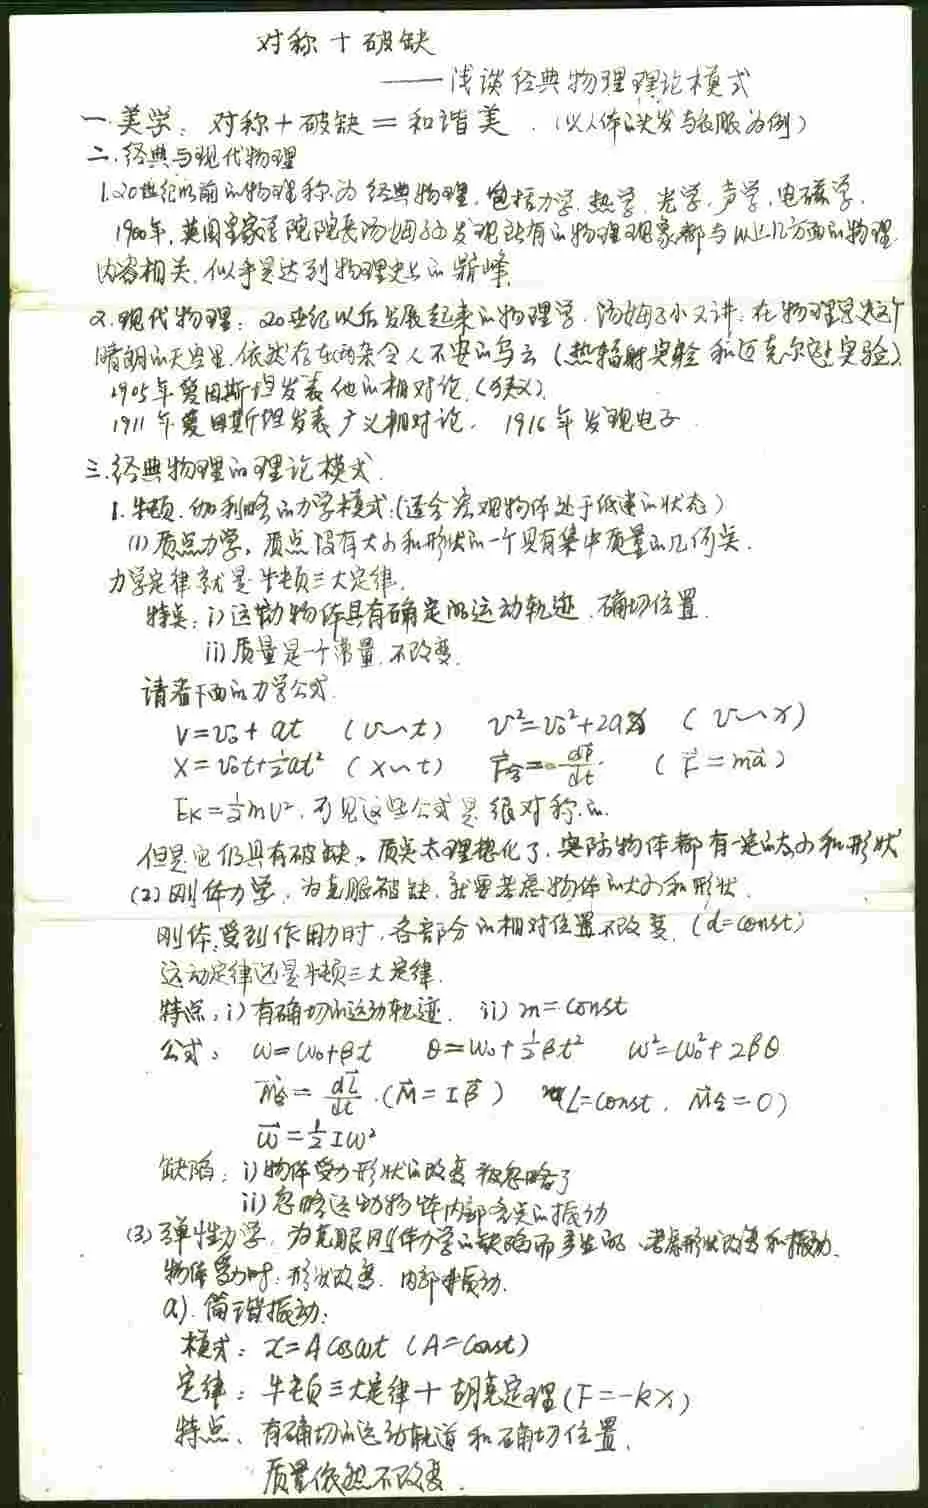 对称＋破缺
——浅谈经典物理理论模式
一.美学：对称＋破缺＝和谐美.（以人体的头发与衣服为例）
二.经典与现代物理
1.20世纪以前的物理称为经典物理，包括力学.热学.光学.声学.电磁学.
1900年，英国皇家学院院长汤姆孙发现所有的物理现象都与以上几方面的物理
内容相关.似乎是达到物理史上的巅峰.
2.现代物理：20世纪以后发展起来的物理学.汤姆孙又讲：在物理学这个
晴朗的天空里.依然存在两朵令人不安的乌云（热辐射实验和迈克尔逊实验）
1905年爱因斯坦发表他的相对论.（狭义）.
1911年爱因斯坦发表广义相对论. 1916年发现电子.
三.经典物理的理论模式.
1.牛顿.伽利略的力学模式：（适合宏观物体处于低速的状态）
(1)质点力学。质点没有大小和形状的一个具有集中质量的几何点.
力学定律就是牛顿三大定律.
特点：i)运动物体具有确定的运动轨迹.确切位置.
ii)质量是一个常量.不改变.
请看下面的力学公式.
V=v₀+at （v~t） v²=v₀²+2ax （v~x）
X=v₀t+½at² （x~t） F⃗合=dp⃗/dt. （F⃗=ma⃗）
Eₖ=½mv². 可见这些公式是很对称的.
但是它仍具有破缺。质点太理想化了，实际物体都有一定的大小和形状
(2)刚体力学，为克服破缺.就要考虑物体的大小和形状.
刚体：受到作用力时，各部分的相对位置不改变.（d=const）
运动定律还是牛顿三大定律.
特点：i)有确切的运动轨迹. ii) m=const
公式： ω=ω₀+βt θ=ω₀+½βt² ω²=ω₀²+2βθ
M⃗合=dL⃗/dt.（M⃗=Iβ⃗） （L=const. M⃗合=0）
ω⃗=½Iω²
缺陷：i)物体受力形状的改变被忽略了
ii)忽略运动物体内部各点的振动
(3)弹性力学，为克服刚体力学的缺陷而产生的.考虑形状改变和振动.
物体受力时：形状改变.内部振动.
a).简谐振动：
模式：x=Acosωt（A=Const）
定律：牛顿三大定律＋胡克定理（F=-kx）
特点、有确切的运动轨道和确切位置.
质量依然不改变.